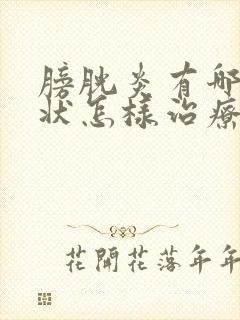 膀胱炎有哪
状怎樣治療
花開花落年年